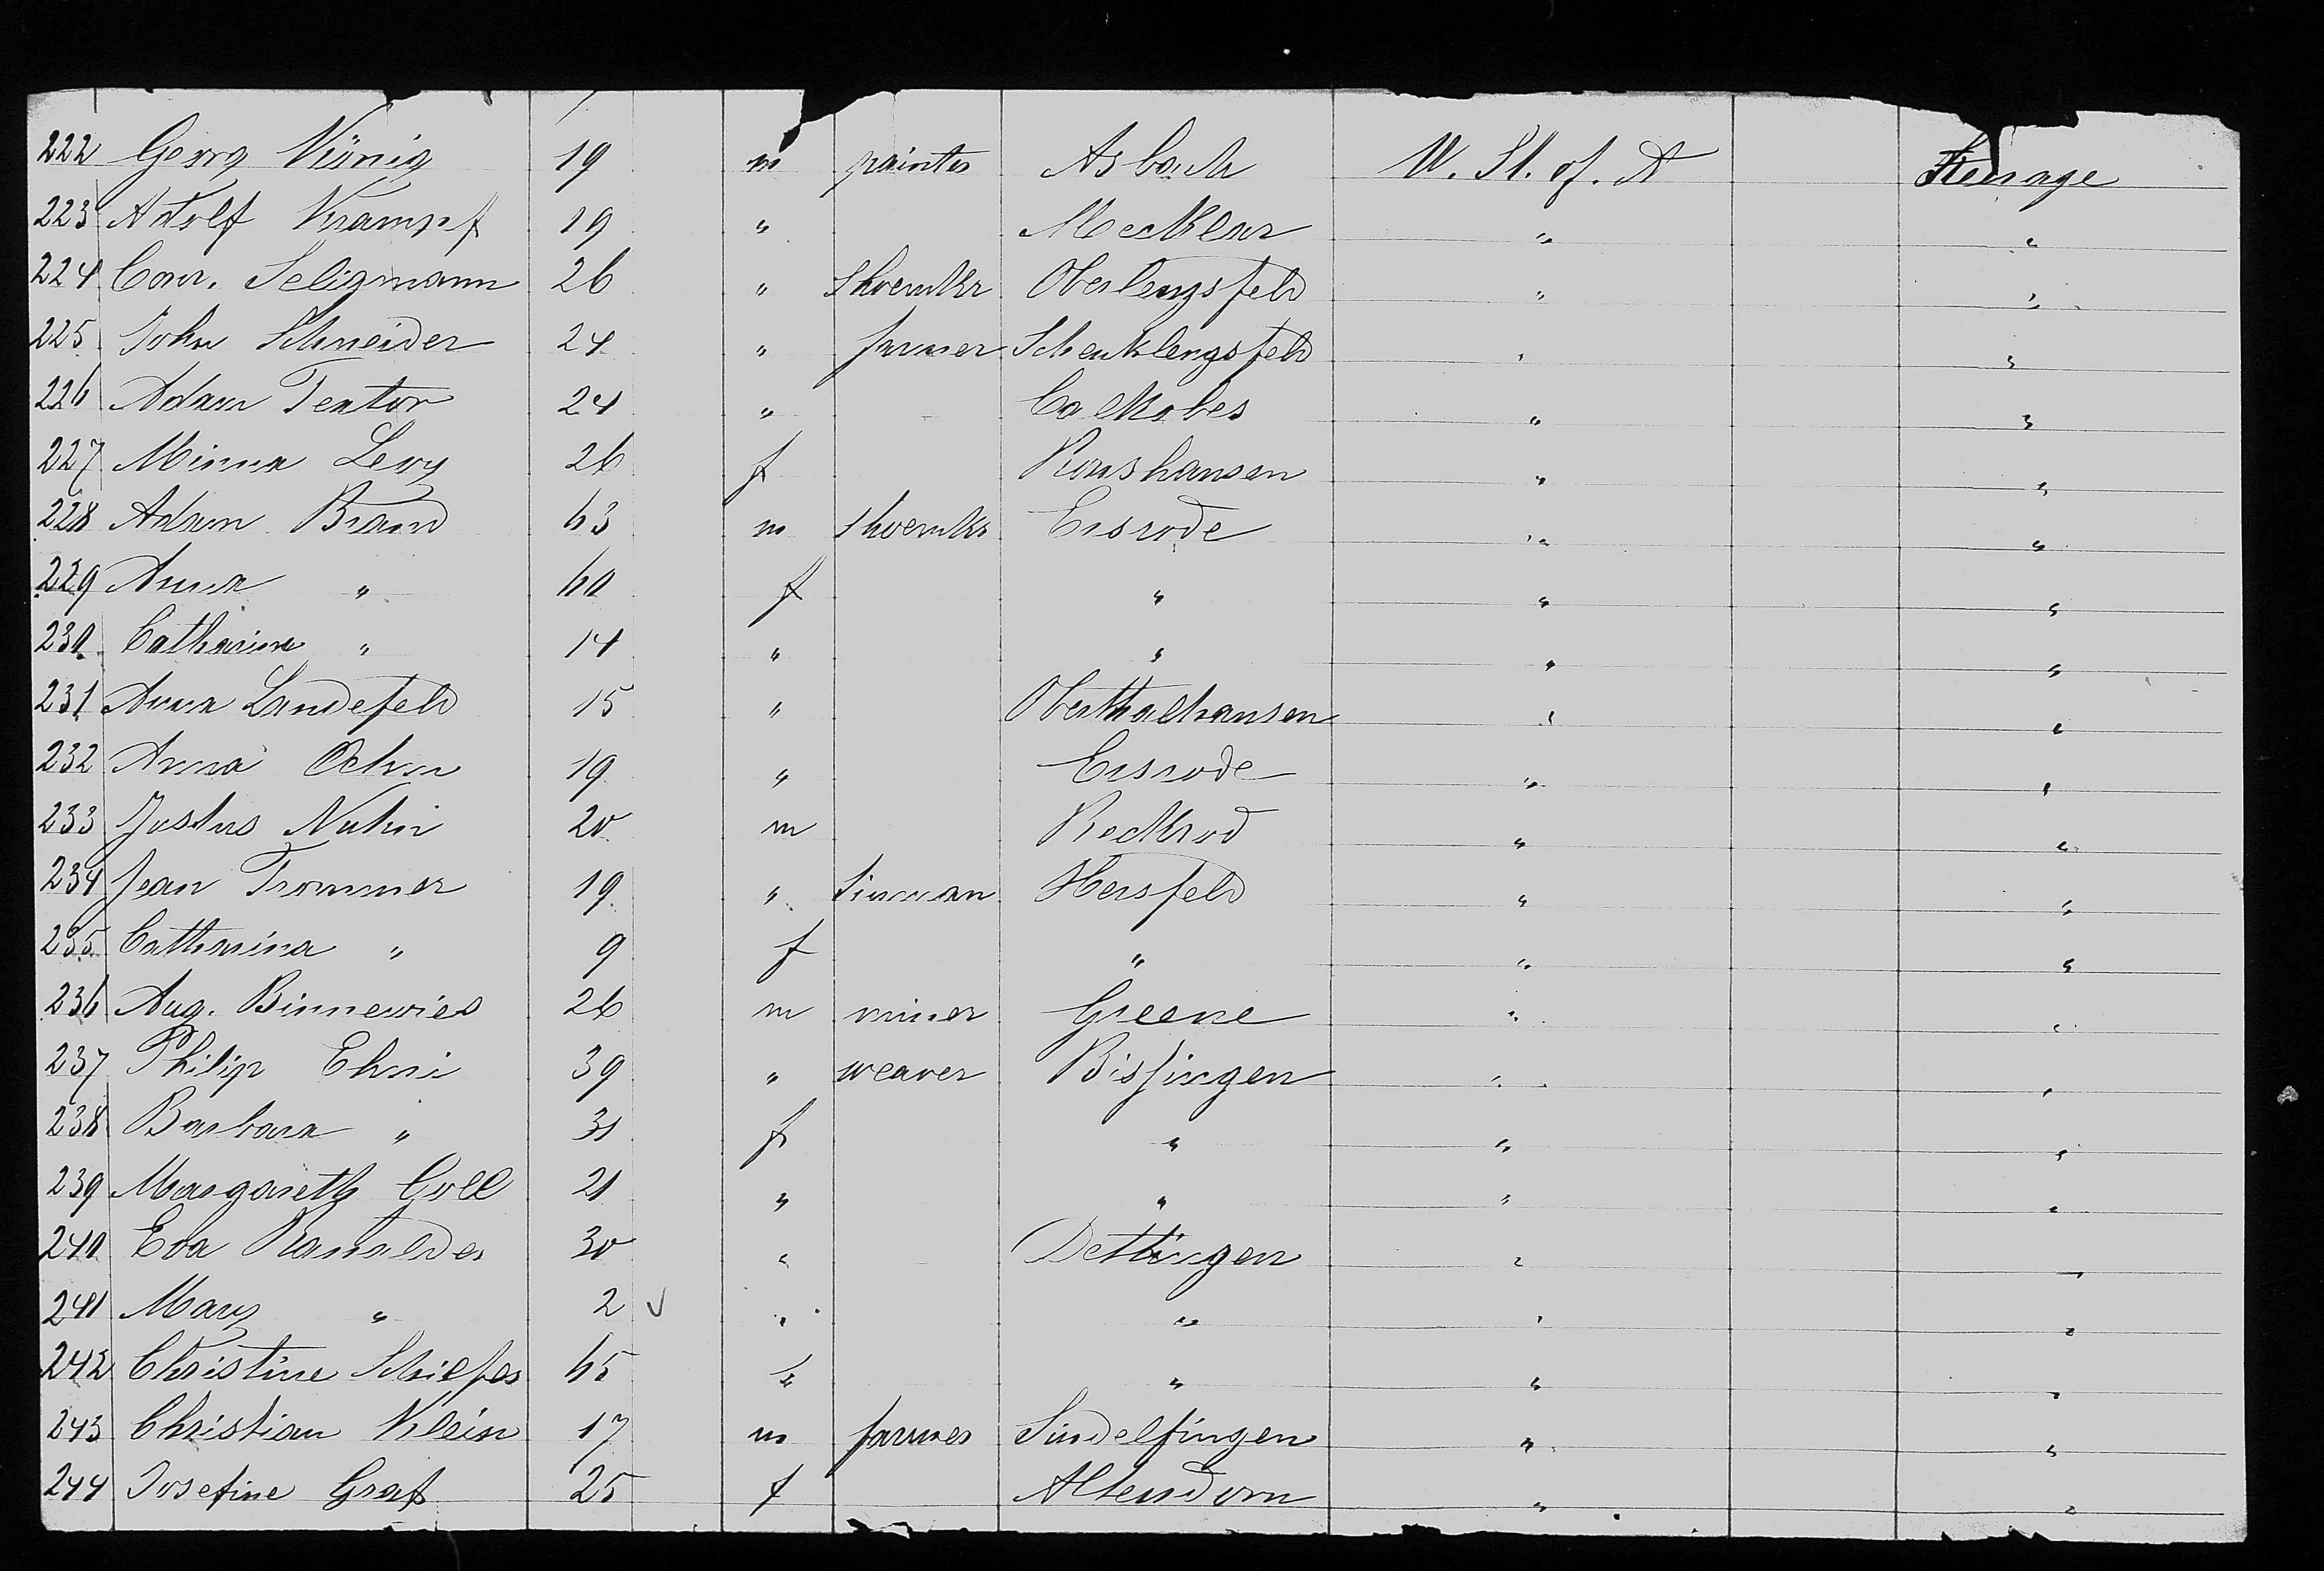 222 Georg König 19 m painter Asbach U. St. of. A Steerage
223 Adolf Krampf 19 " Mecklar " "
224 Conr. Seligmann 26 " shoemkr Oberlengsfeld " "
225 John Schneider 24 " farmer Schenklengsfeld " "
226 Adam Textor 24 " Calkobes " "
227 Minna Levy 26 f Ronshausen " "
228 Adam Brand 63 m shoemkr Ersrode " "
229 Anna " 60 f " " "
230 Catharina " 14 " " " "
231 Anna Landefeld 15 " Oberthalhausen " "
232 Anna Oehm 19 " Ersrode " "
233 Justus 20 m " "
234 Jean Trommer 19 " tinman Hersfeld " "
235 Catharina " 9 f " " "
236 Aug. Binnewies 26 m miner Greene " "
237 Philip Ehni 39 " weaver Bissingen " "
238 Barbara " 31 f " " "
239 Margareth Goll 21 " " " "
240 Eva 30 " Dettingen " "
241 Mary " 2 ✓ " " " "
242 Christine 65 " " " "
243 Christian Klein 17 m farmer Sindelfingen " "
244 Josefine Graf 25 f Altendorn " "